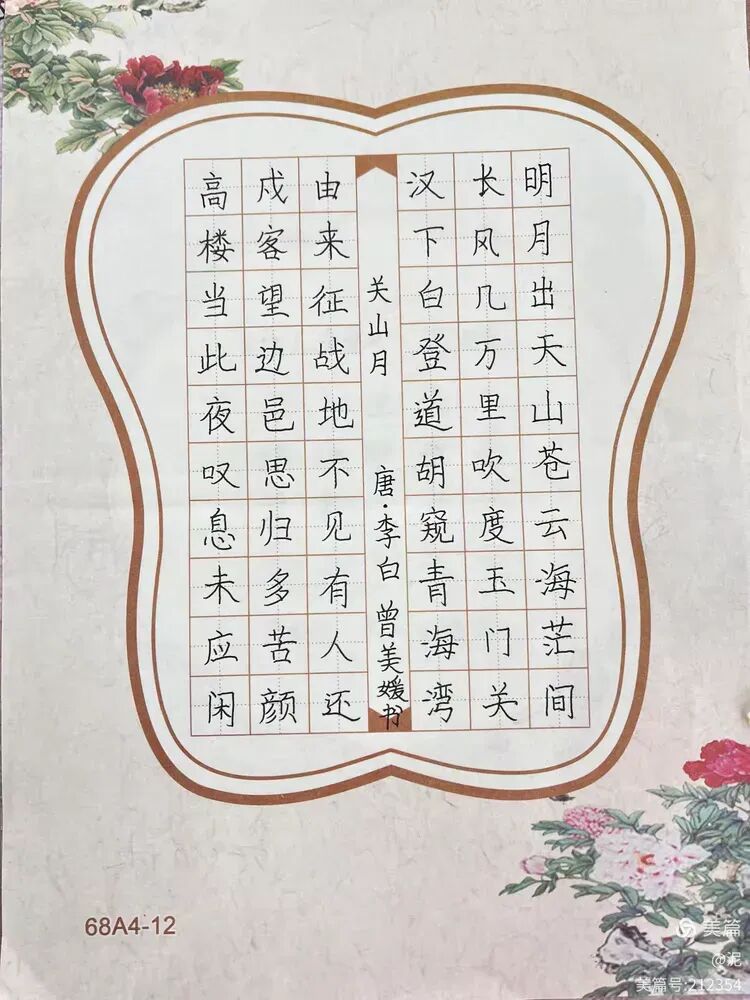 明月出天山苍云海茫间
长风几万里吹度玉门关
汉下白登道胡窥青海湾
关山月 唐·李白 曾美媛书
由来征战地不见有人还
戍客望边邑思归多苦颜
高楼当此夜叹息未应闲
68A4-12
美篇
@泥
美篇号:212354